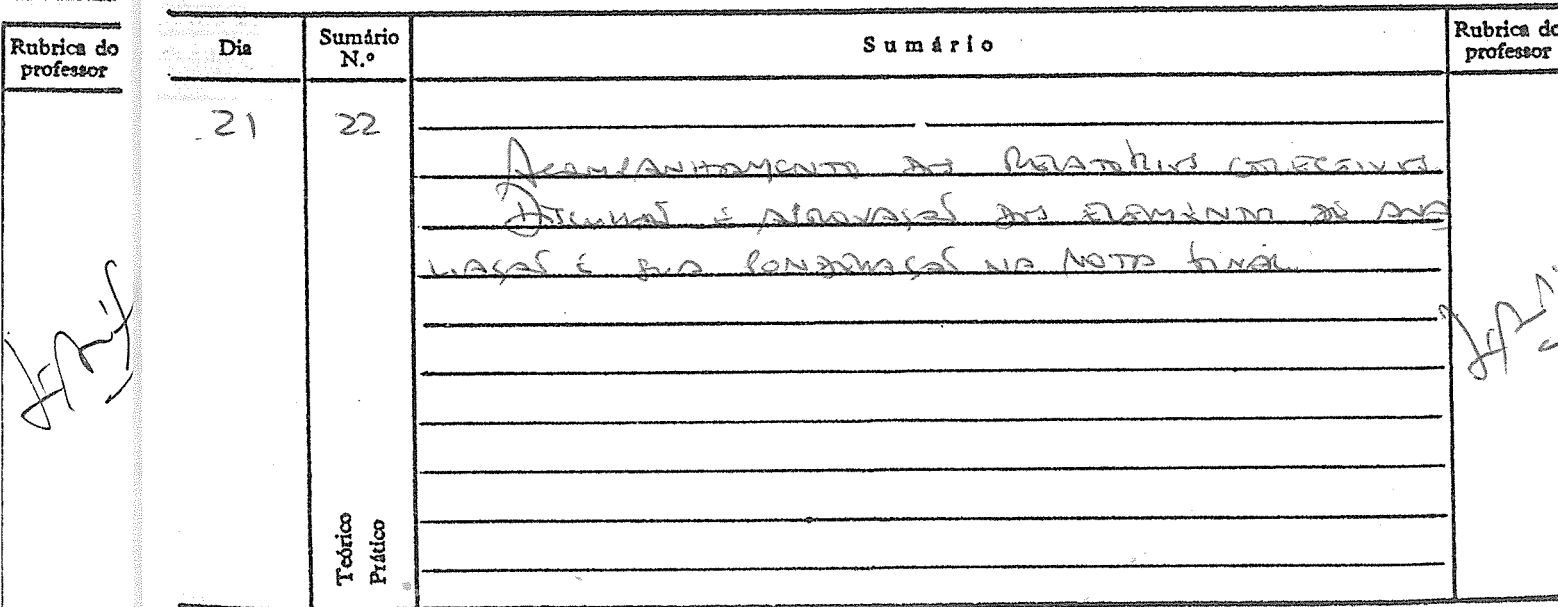 Rubrica do
professor
Dia
Sumário
N.º
Sumário
Rubrica do
professor
21
22
Acompanhamento dos Relatórios colectivos.
Discussão e aprovação dos elementos de ava
liação e sua ponderação na nota final.
Teórico
Prático